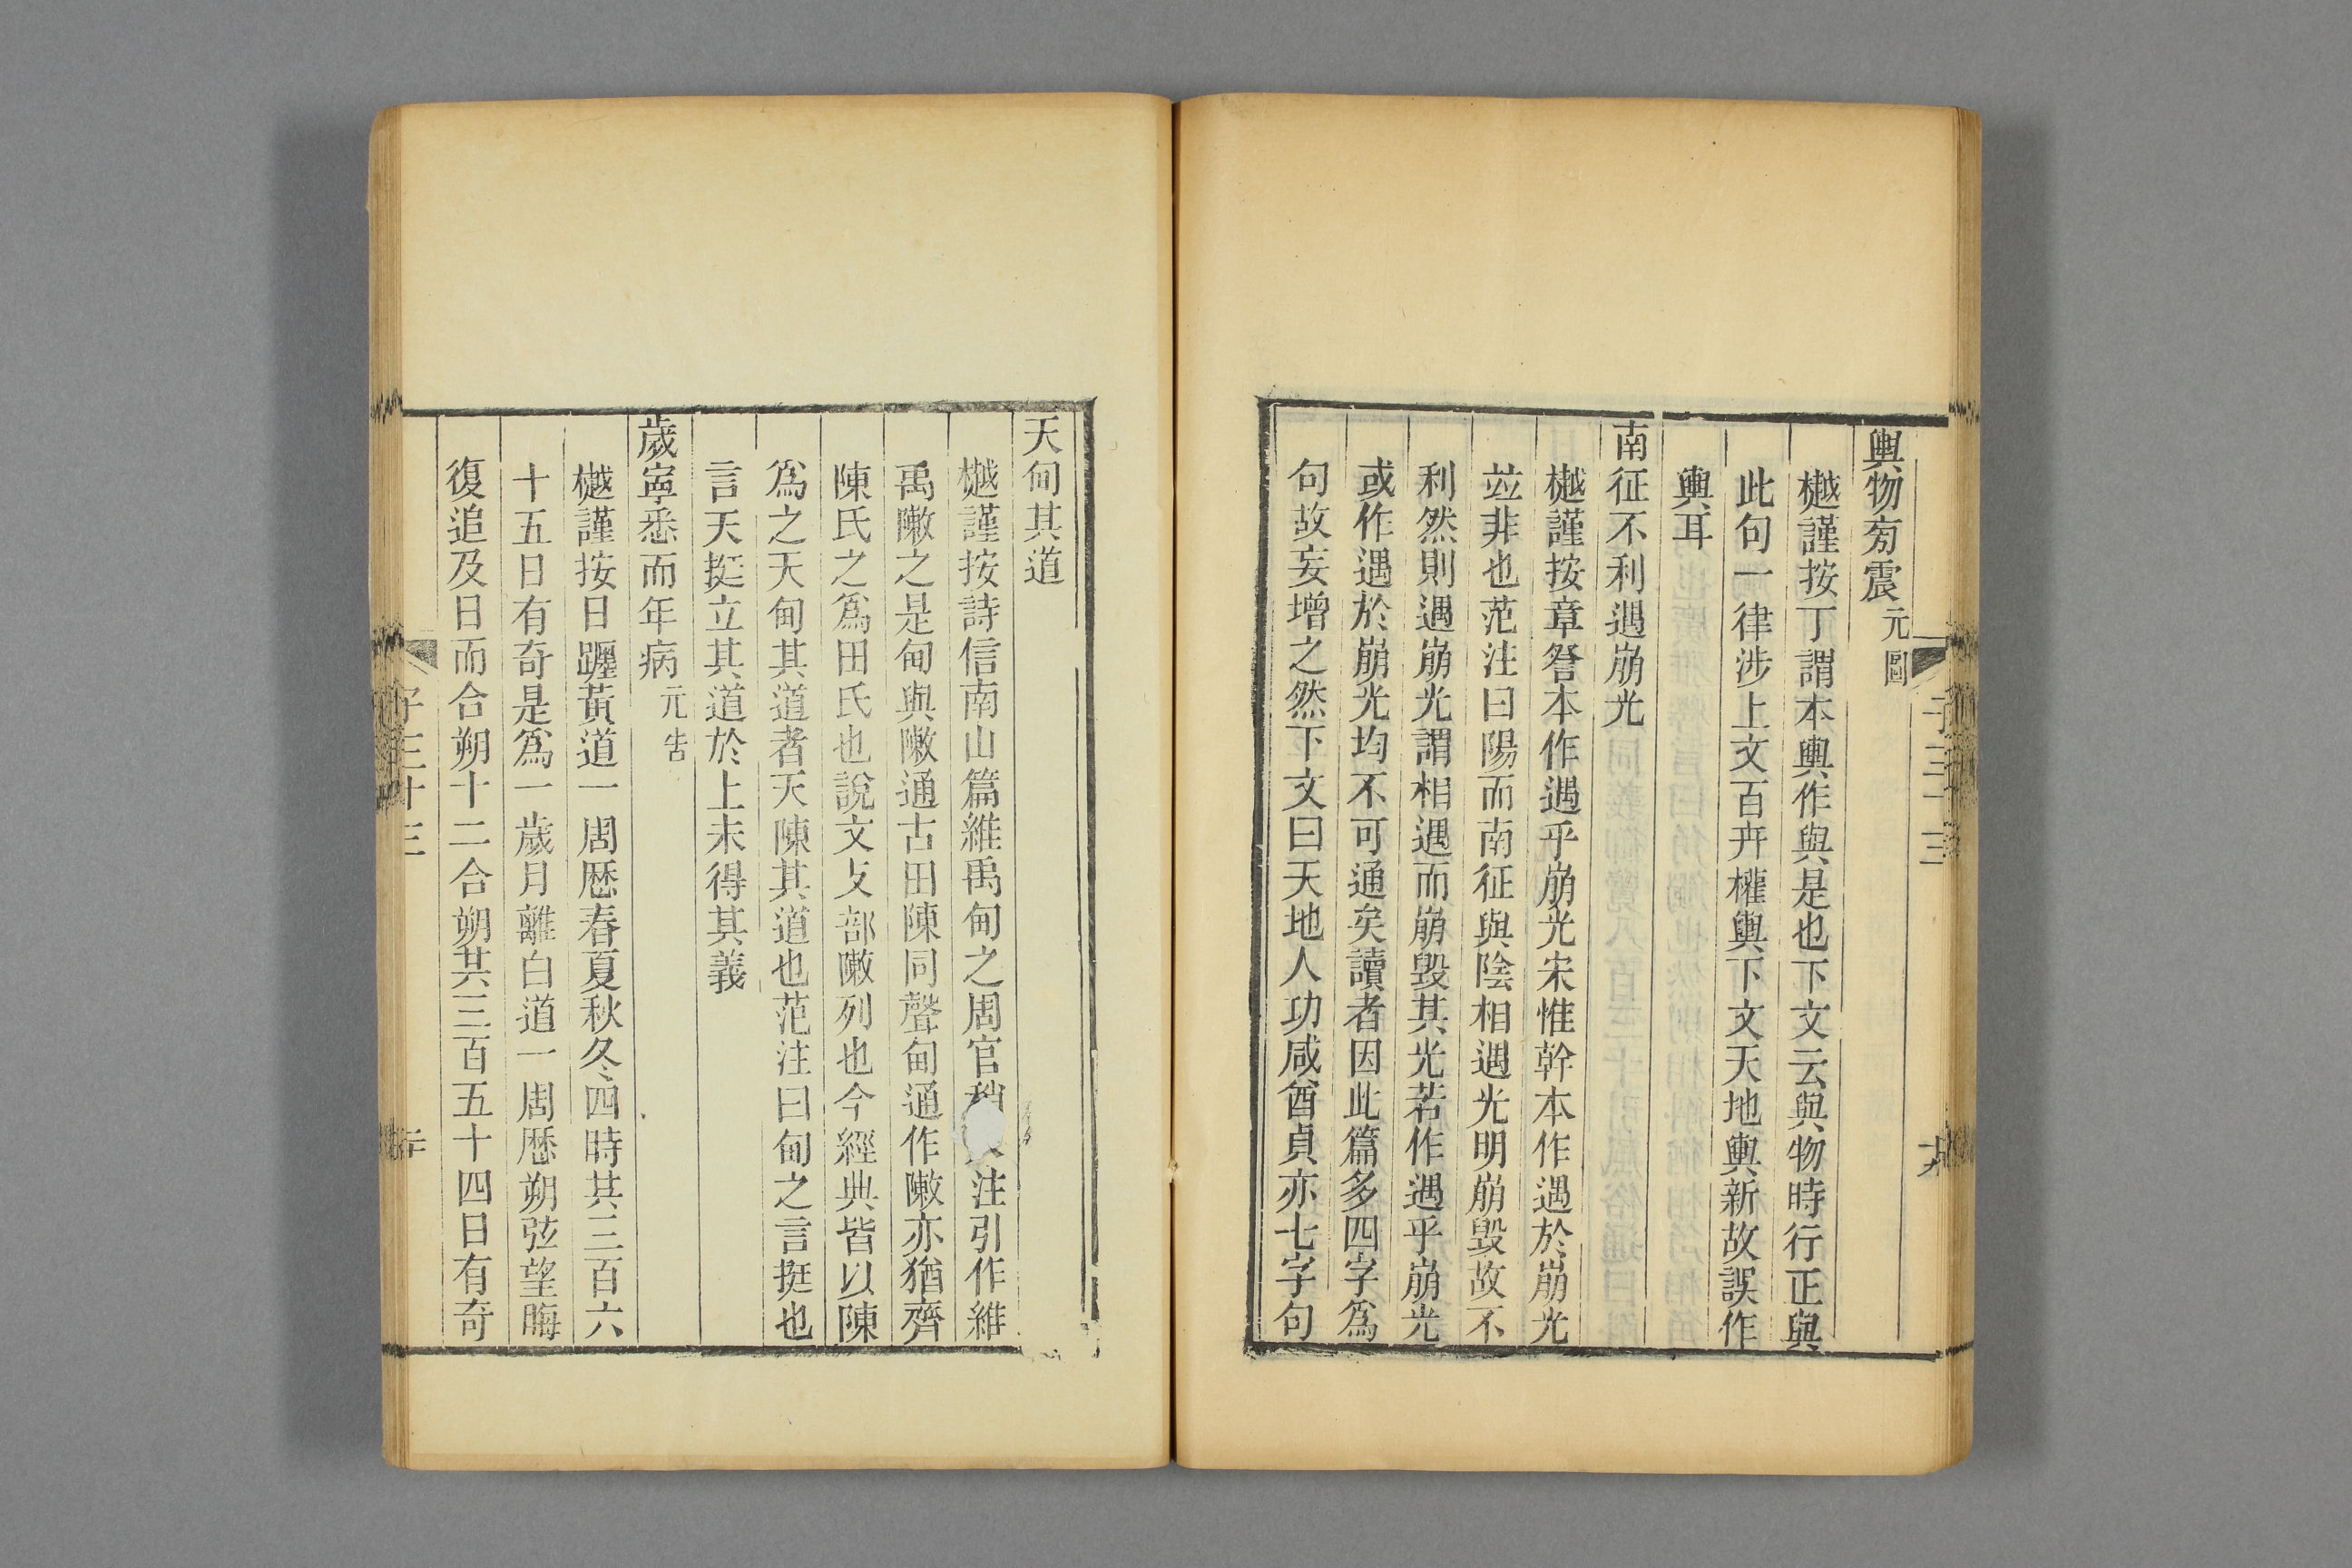 輿物㫄震元圖
樾謹按丁謂本輿作與是也下文云與物時行正與
此句一律涉上文百卉權輿下文天地輿新故誤作
輿耳
南征不利遇崩光
樾謹按章詧本作遇乎崩光宋惟幹本作遇於崩光
竝非也范注曰陽而南征與陰相遇光明崩毀故不
利然則遇崩光謂相遇而崩毀其光若作遇乎崩光
或作遇於崩光均不可通矣讀者因此篇多四字爲
句故妄增之然下文曰天地人功咸酋貞亦七字句
子三十三
十九
天甸其道
樾謹按詩信南山篇維禹甸之周官稍注引作維
禹敶之是甸與敶通古田陳同聲甸通作敶亦猶齊
陳氏之爲田氏也說文攴部敶列也今經典皆以陳
爲之天甸其道者天陳其道也范注曰甸之言挺也
言天挺立其道於上未得其義
歲寍悉而年病元告
樾謹按日躔黃道一周歷春夏秋冬四時其三百六
十五日有奇是爲一歲月離白道一周歷朔弦望晦
復追及日而合朔十二合朔其三百五十四日有奇
子三十三